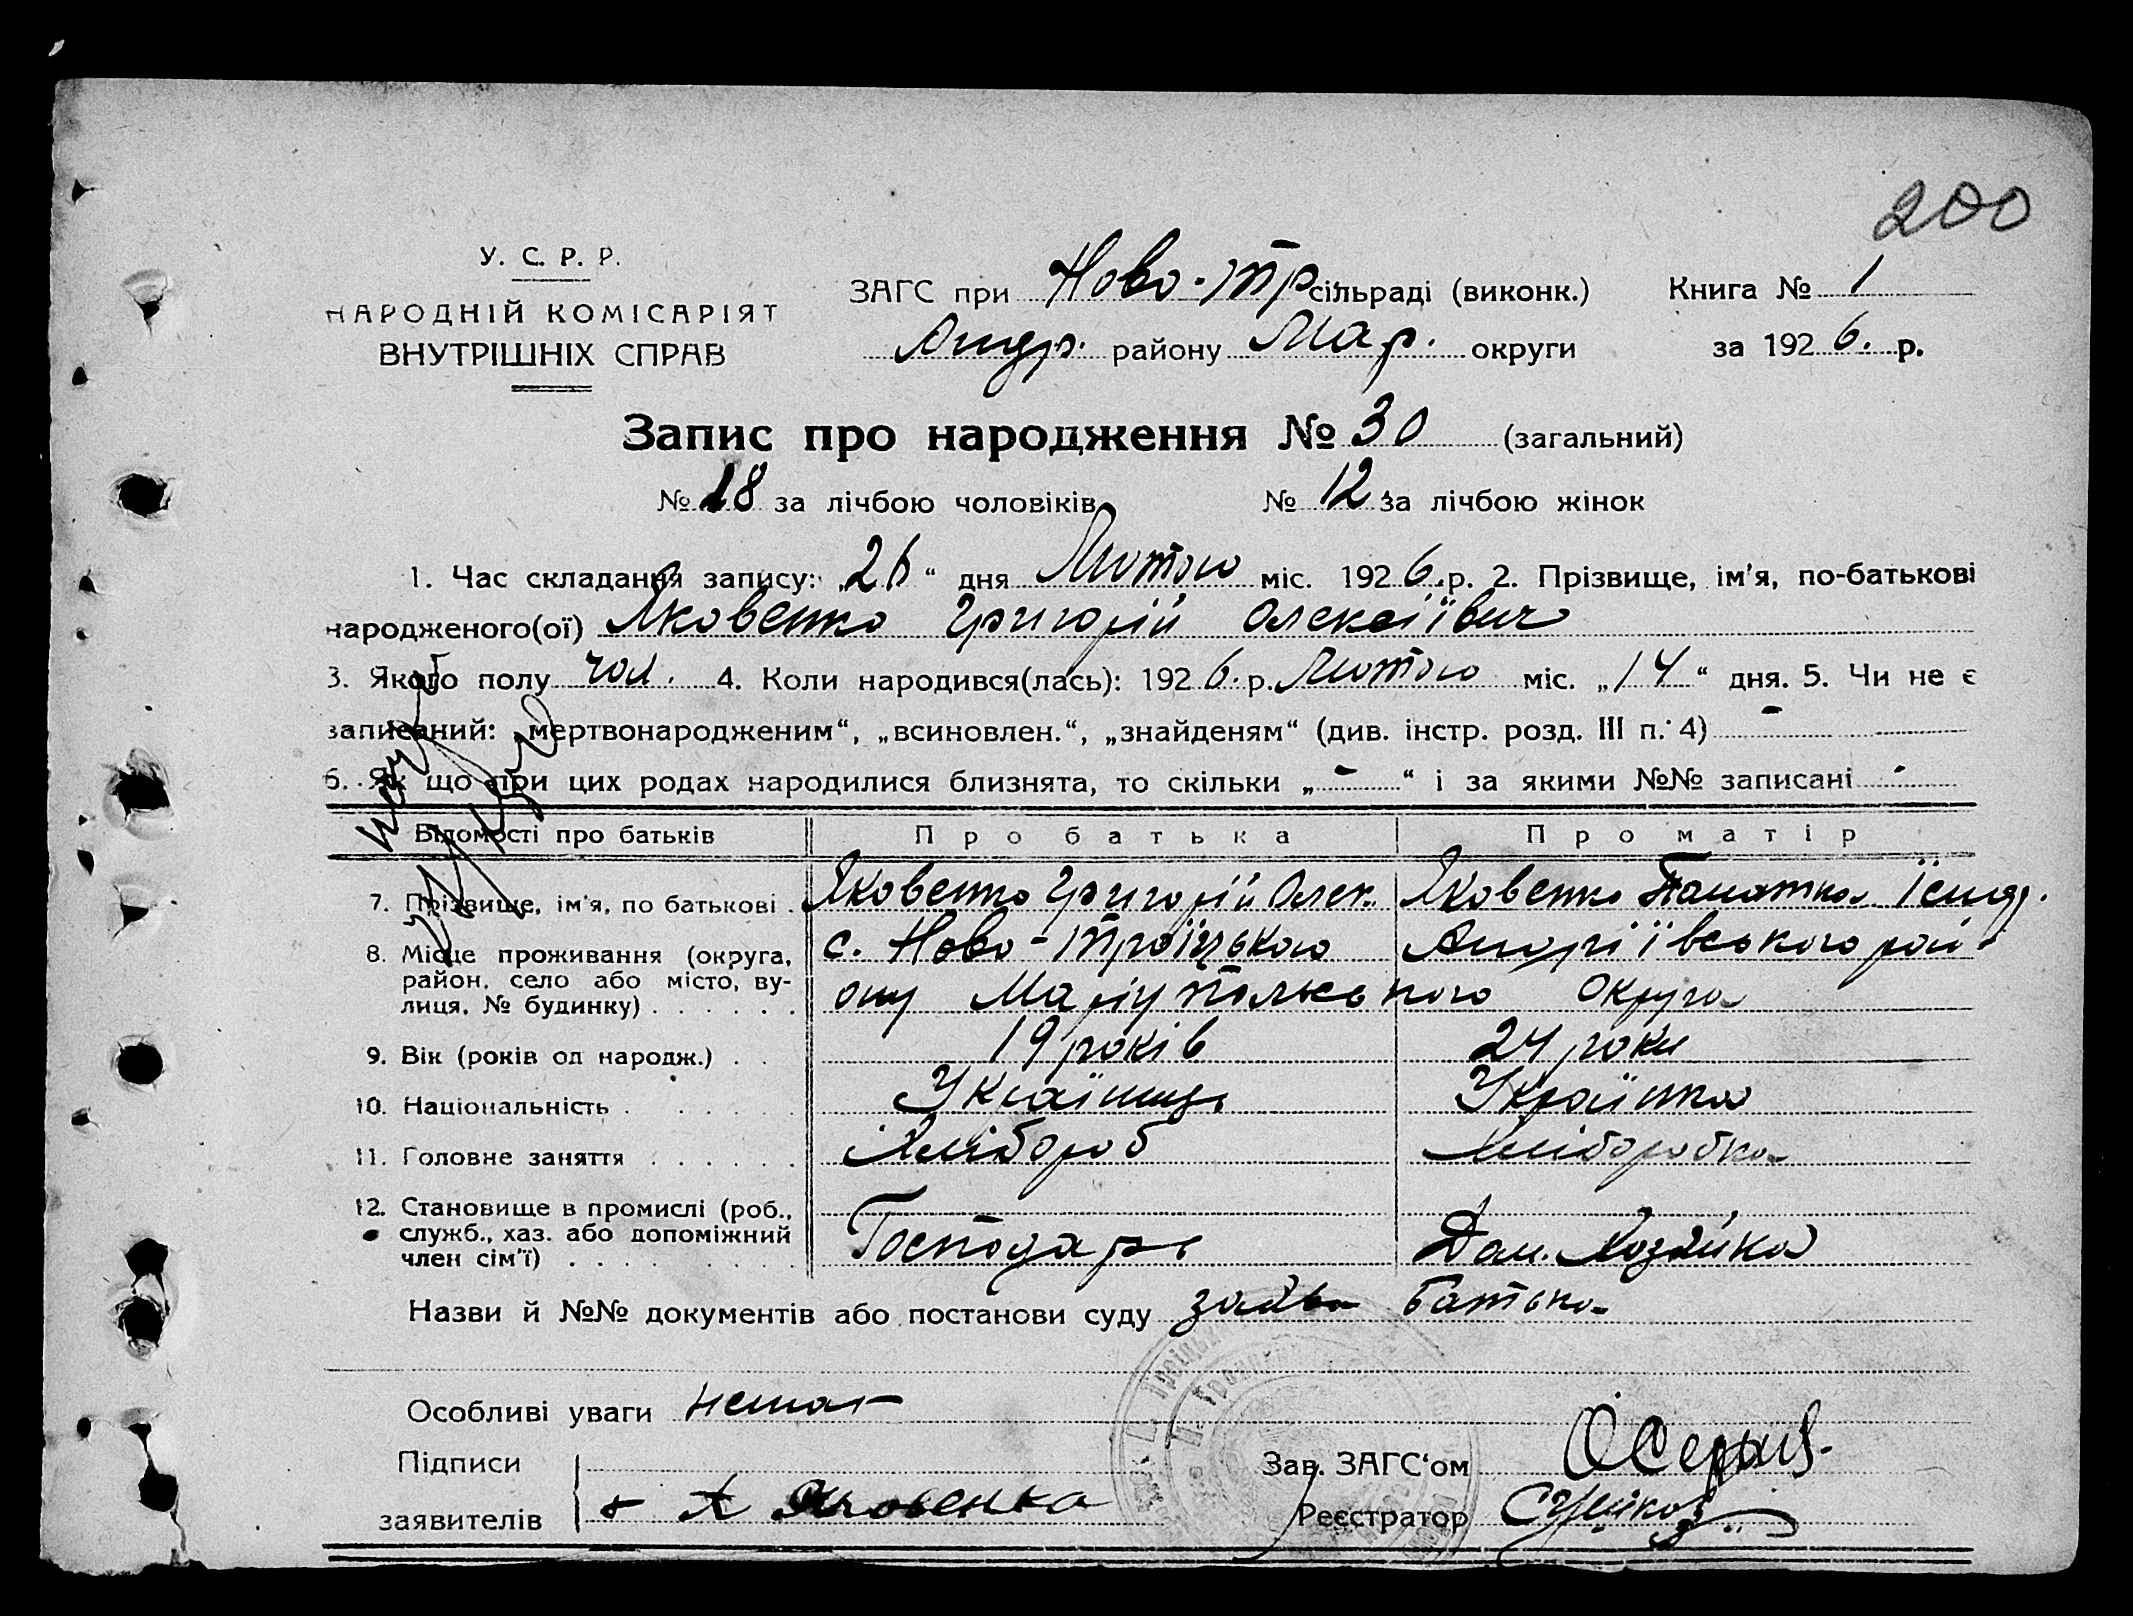 200
У. С. Р. Р.
НАРОДНІЙ КОМІСАРІЯТ
ВНУТРІШНІХ СПРАВ
ЗАГС при Ново-Тр сільраді (виконк.)
Андр. району Мар. округи
Книга № 1
за 1926. р.
Запис про народження № 30 (загальний)
№ 18 за лічбою чоловіків № 12 за лічбою жінок
1. Час складання запису: „26“ дня Лютого міс. 1926.р. 2. Прізвище, ім'я, по-батькові
народженого(ої) Яковенко Григорій Олексіївич
3. Якого полу чол. 4. Коли народився(лась): 1926.р. Лютого міс. „14“ дня. 5. Чи не є
записаний: „мертвонародженим“, „всиновлен.“, „знайденям“ (див. інстр. розд. III п. 4) -
6. Як що при цих родах народилися близнята, то скільки „-“ і за якими №№ записані -
Відомості про батьків Про батька Про матір
7. Прізвище, ім'я, по батькові . Яковенко Григорій Олек. Яковенко
8. Місце проживання (округа, район, село або місто, вулиця, № будинку) . . . . . .
с. Ново-Троїцького Андріївського рай
ону Маріупольського Округа
9. Вік (років од народж.) . . 19 років 24 роки
10. Національність . . . . . Українець Українка
11. Головне заняття . . . . . . Хлібороб Хліборобка
12. Становище в промислі (роб., служб., хаз. або допоміжний член сім'ї) . . . . . . . . .
Господарь Дом. Хозяйка
Назви й №№ документів або постанови суду заява батька
Особливі уваги немає
Підписи
заявителів А Яковенко
Зав. ЗАГС'ом
Реєстратор